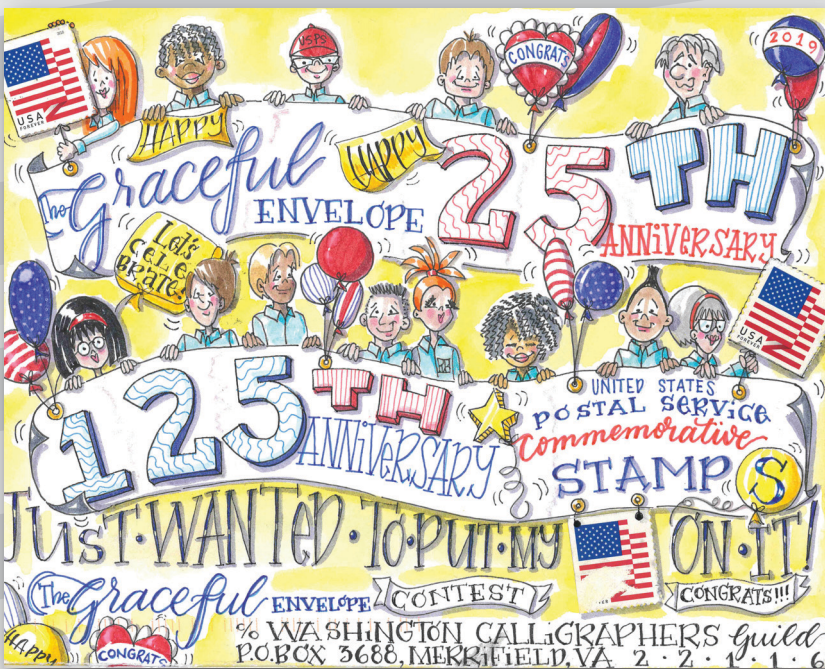 USA
FOREVER
USPS
CONGRATS
2019
HAPPY
The Graceful
ENVELOPE
HAPPY
25TH
ANNiVERSARY
Let's
CELE
BRATE!
USA
FOREVER
125TH
ANNiVERSARY
UNITED STATES
POSTAL SERViCE
Commemorative
STAMPS
JUST·WANTED·TO·PUT·MY ON·IT!
The Graceful ENVELOPE CONTEST CONGRATS!!!
HAPPY
CONGRATS
% WASHiNGTON CALLiGRAPHERS Guild
P.O.BOX 3688, MERRiFiELD, VA 2·2·1·1·6